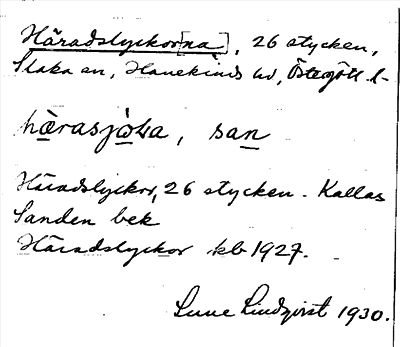 Häradslyckor[na], 26 stycken,
Slaka sn, Hanekinds hd, Östergötl. l.
hærasjöka, san
Häradslyckor, 26 stycken - Kallas
Sanden bek
Häradslyckor kb 1927.
Sune Lindqvist 1930.